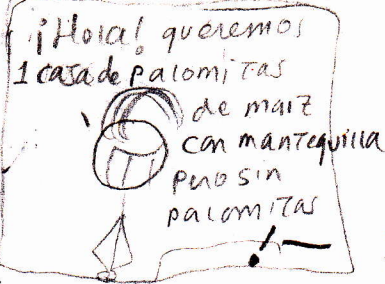 ¡Hola! queremos
1 caja de palomitas
de maiz
con mantequilla
pero sin
palomitas